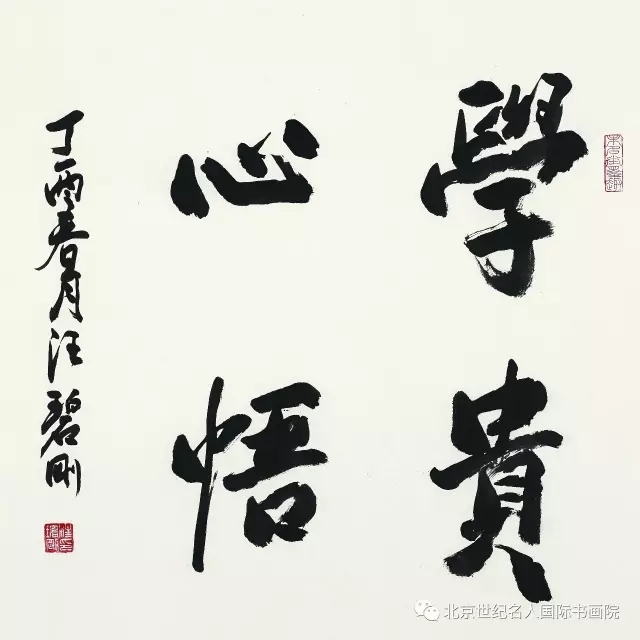 學貴
心悟
丁酉春月汪碧刚
北京世纪名人国际书画院